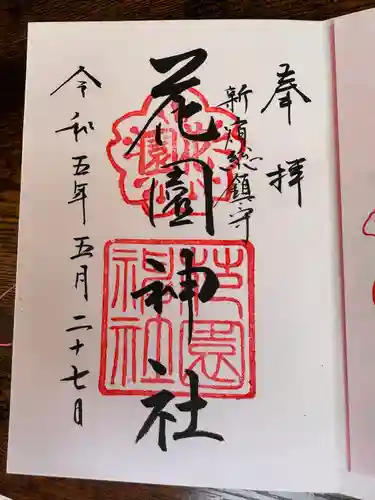 奉拝
新宿総鎮守
花園神社
令和五年五月二十七日
花園
花園神社